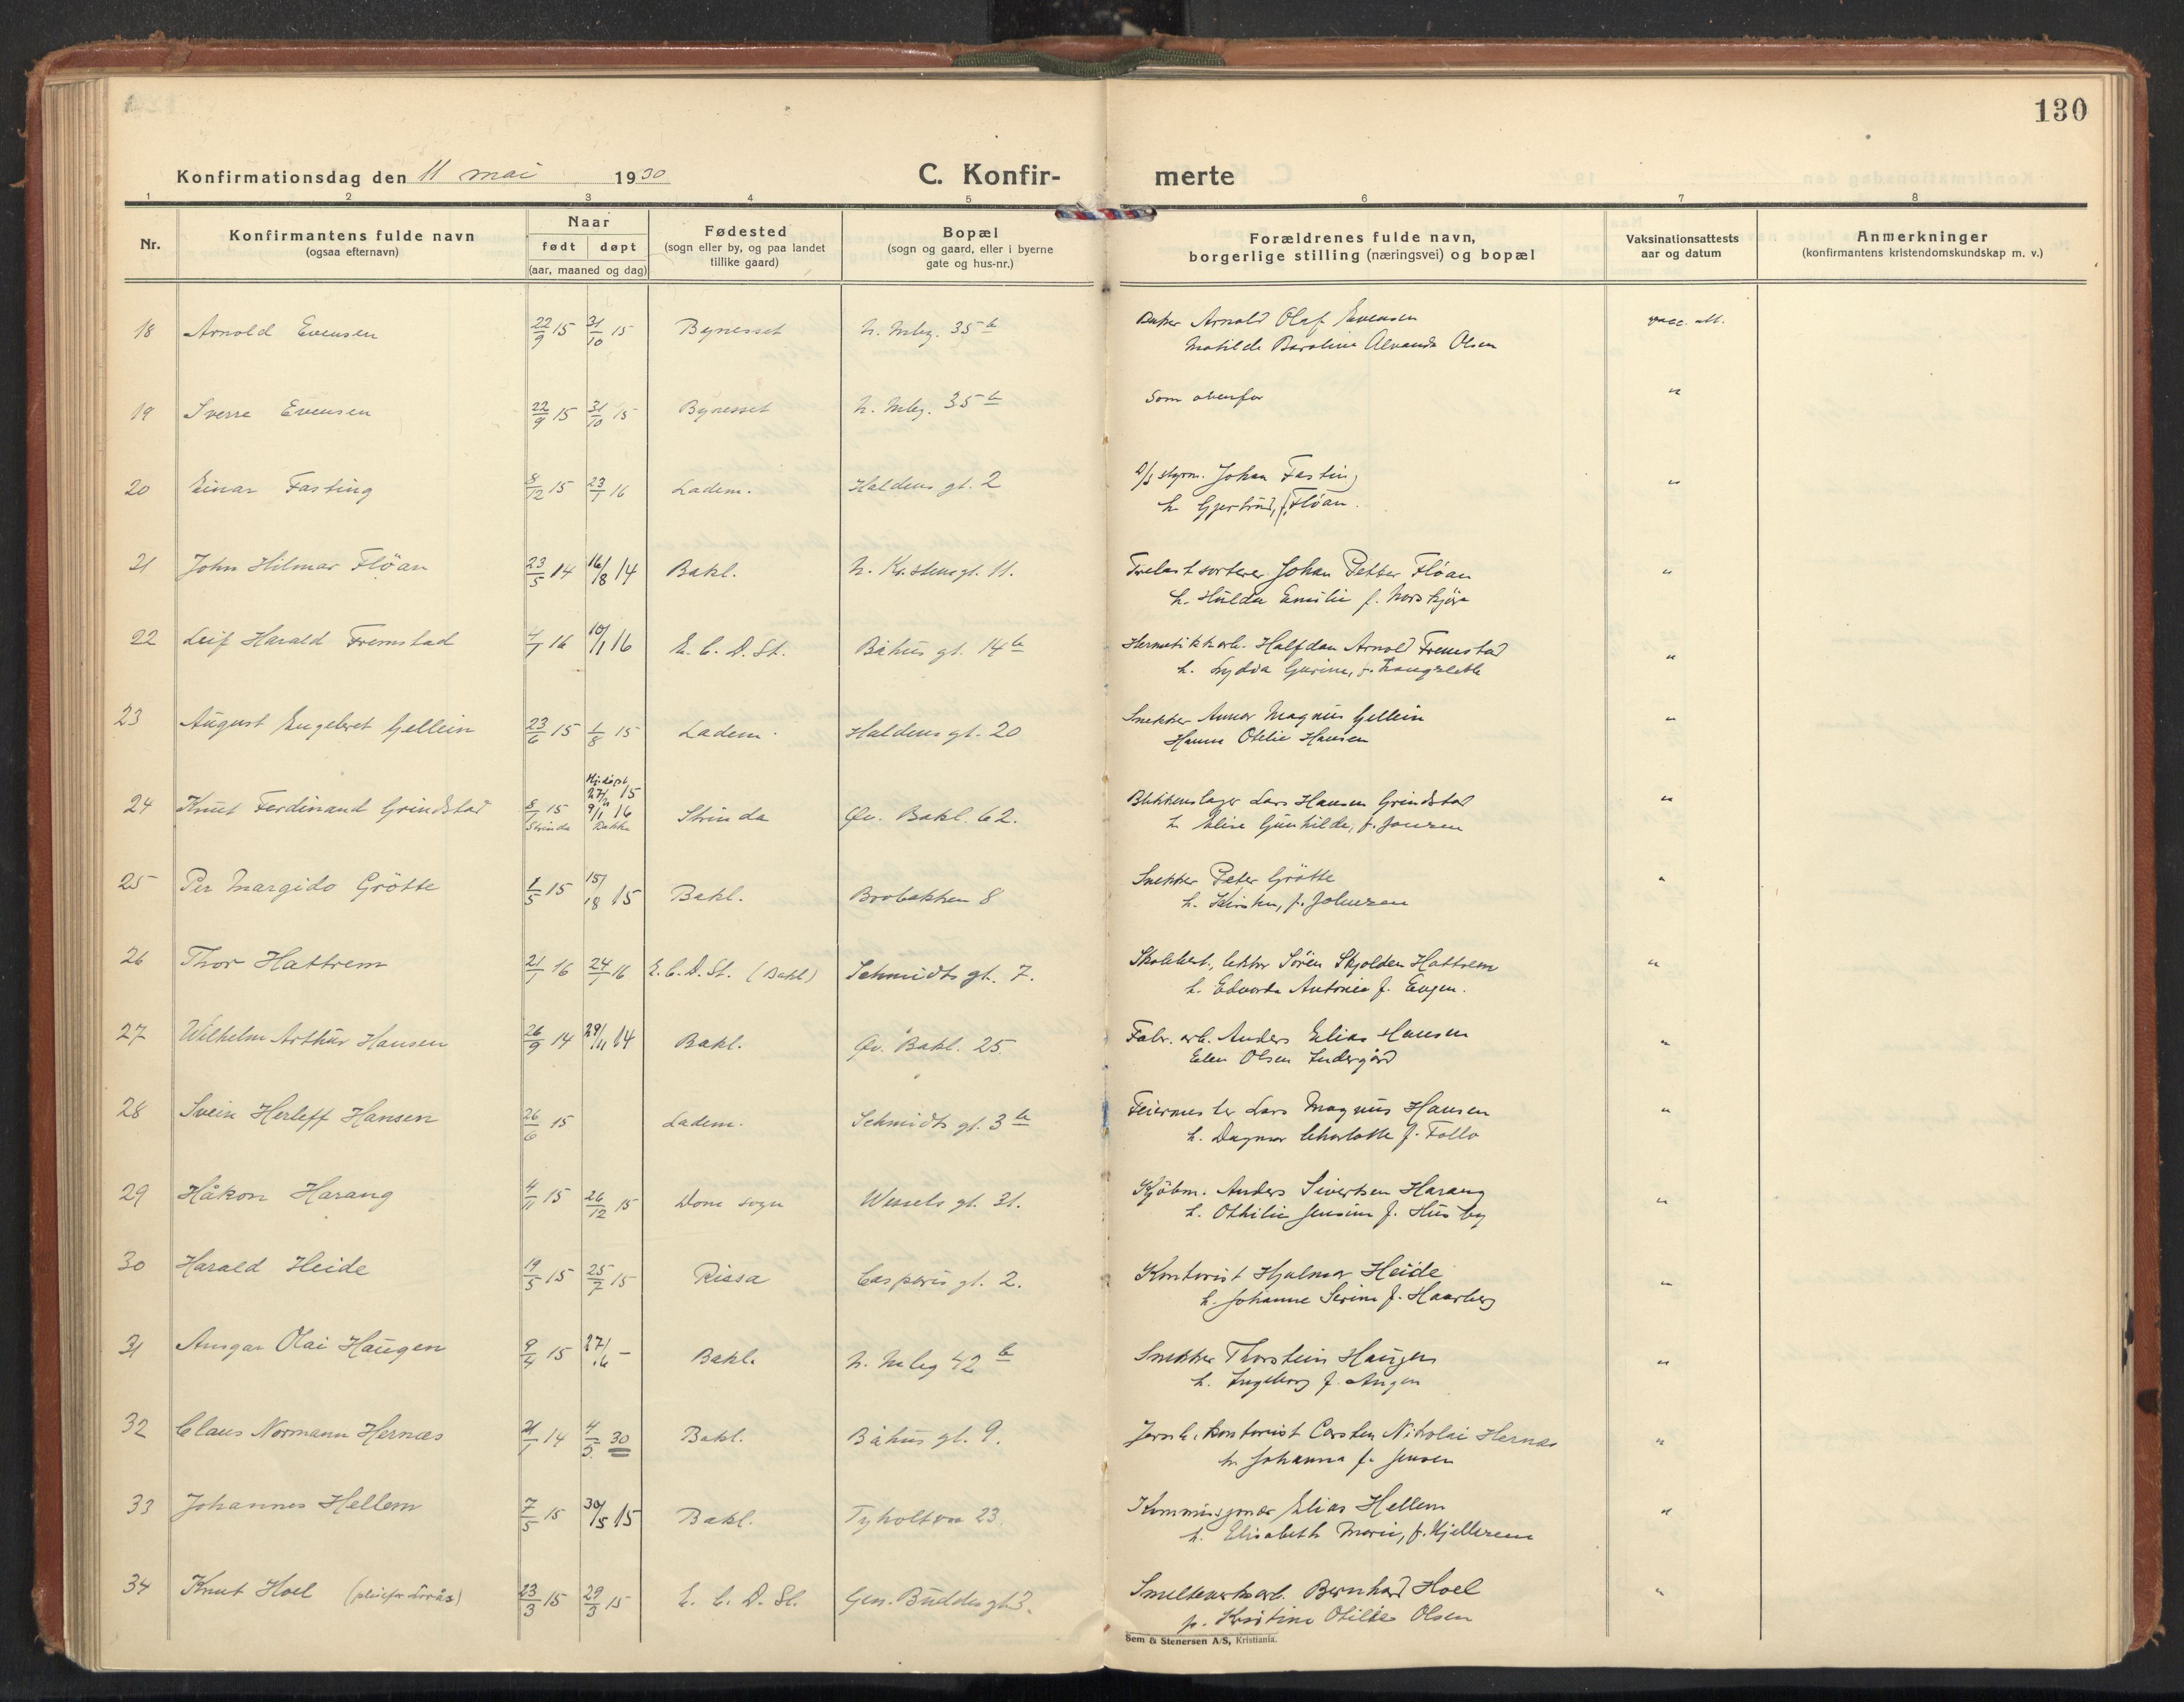 130
Konfirmationsdag den 11 mai 1930 C. Konfirmerte
1 2 3 4 5 6 7 8
Nr.
Konfirmantens fulde navn
(ogsaa efternavn)
Naar
født døpt
(aar, maaned og dag)
Fødested
(sogn eller by, og paa landet
tillike gaard)
Bopæl
(sogn og gaard, eller i byerne
gate og hus-nr.)
Forældrenes fulde navn,
borgerlige stilling (næringsvei) og bopæl
Vaksinationsattests
aar og datum
Anmerkninger
(konfirmantens kristendomskundskap m. v.)
18 Arnold Evensen 22/9 15 31/10 15 Bynesset N. Mbg. 35 b Arnold Olaf Evensen vacc. att.
Matilde Olsen
19 Sverre Evensen 22/9 15 31/10 15 Bynesset N. Mbg. 35 b Som ovenfor "
20 Einar Fasting 8/12 15 23/1 16 Ladem. Haldens gt. 2 D/S styrm. Johan Fasting "
h. Gjertrud, f. Fløan.
21 John Hilmar Flöan 23/5 14 16/8 14 Bakl. N. Kr.stensgt. 11. Trelastsorterer Johan Petter Flöan "
h. Hulda Emilie f.
22 Leif Harald Fremstad 4/1 16 10/1 16 E. C. D. St. Båhus gt. 14 b Hermetikkarb. Halfdan Arnold Fremstad "
h. Lydia Gurine, f.
23 August Engebret Gellein 23/6 15 1/8 15 Ladem. Haldens gt. 20 Snekker Magnus Gellein "
Hanna Otelie Hansen
24 Knut Ferdinand Grindstad 8/1 15 Strinda Hj.døpt 27/ 15 9/1 16 Strinda Öv. Bakl. 62. Blikkenslager Lars Hansen Grindstad "
h. Elise Gunhilda, f. Jonsen
25 Per Margido Grötte 1/5 15 15/8 15 Bakl. Brobakken 8 Snekker Peter Grötte "
h. Kirsten, f. Johnsen
26 Thor Hattrem 21/1 16 24/ 16 E. C. D. St. (Bakl) Schmidts gt. 7. lektor Sören Skjolden Hattrem "
h. Edvarda Antonie f. Engen.
27 Wilhelm Arthur Hansen 26/9 14 29/11 14 Bakl. Öv. Bakl. 25 Fabr. arb. Anders Elias Hansen "
Elen Olsen Indergård
28 Svein Herleff Hansen 26/6 15 Ladem. Schmidts gt. 3 b Feiermester Lars Magnus Hansen "
h. Dagmar Charlotte f. Follo
29 Håkon Harang 4/11 15 26/12 15 Dom sogn Wessels gt. 31. Kjöbm. Anders Sivertsen Harang "
h. Othilie Jensine f. Husby
30 Harald Heide 19/5 15 25/7 15 Rissa Casparis gt. 2. Kontorist Hjalmar Heide "
h. Johanne Serine f. Haarberg
31 Ansgar Olai Haugen 9/4 15 27/6 - Bakl. N. Mbg 42 b Snekker Thorstein Haugen "
h. Ingeborg f. Angen
32 Claus Normann Hernæs 21/1 14 4/5 30 Bakl. Båhus gt. 9. Jernb. kontorist Carsten Nikolai Hernæs "
h. Johanna f. Jensen
33 Johannes Hellem 7/5 15 30/5 15 Bakl. Tyholtvn 23. Kommisjonær Elias Hellem "
h. Elisabeth Marie, f.
34 Knut Hoel 23/3 15 29/3 15 E. C. D. St. Gen. Buddes gt 3. Smelteverksarb. Bernhard Hoel "
p. Kristine Otilie Olsen
Sem & Stenersen A/S, Kristiania.